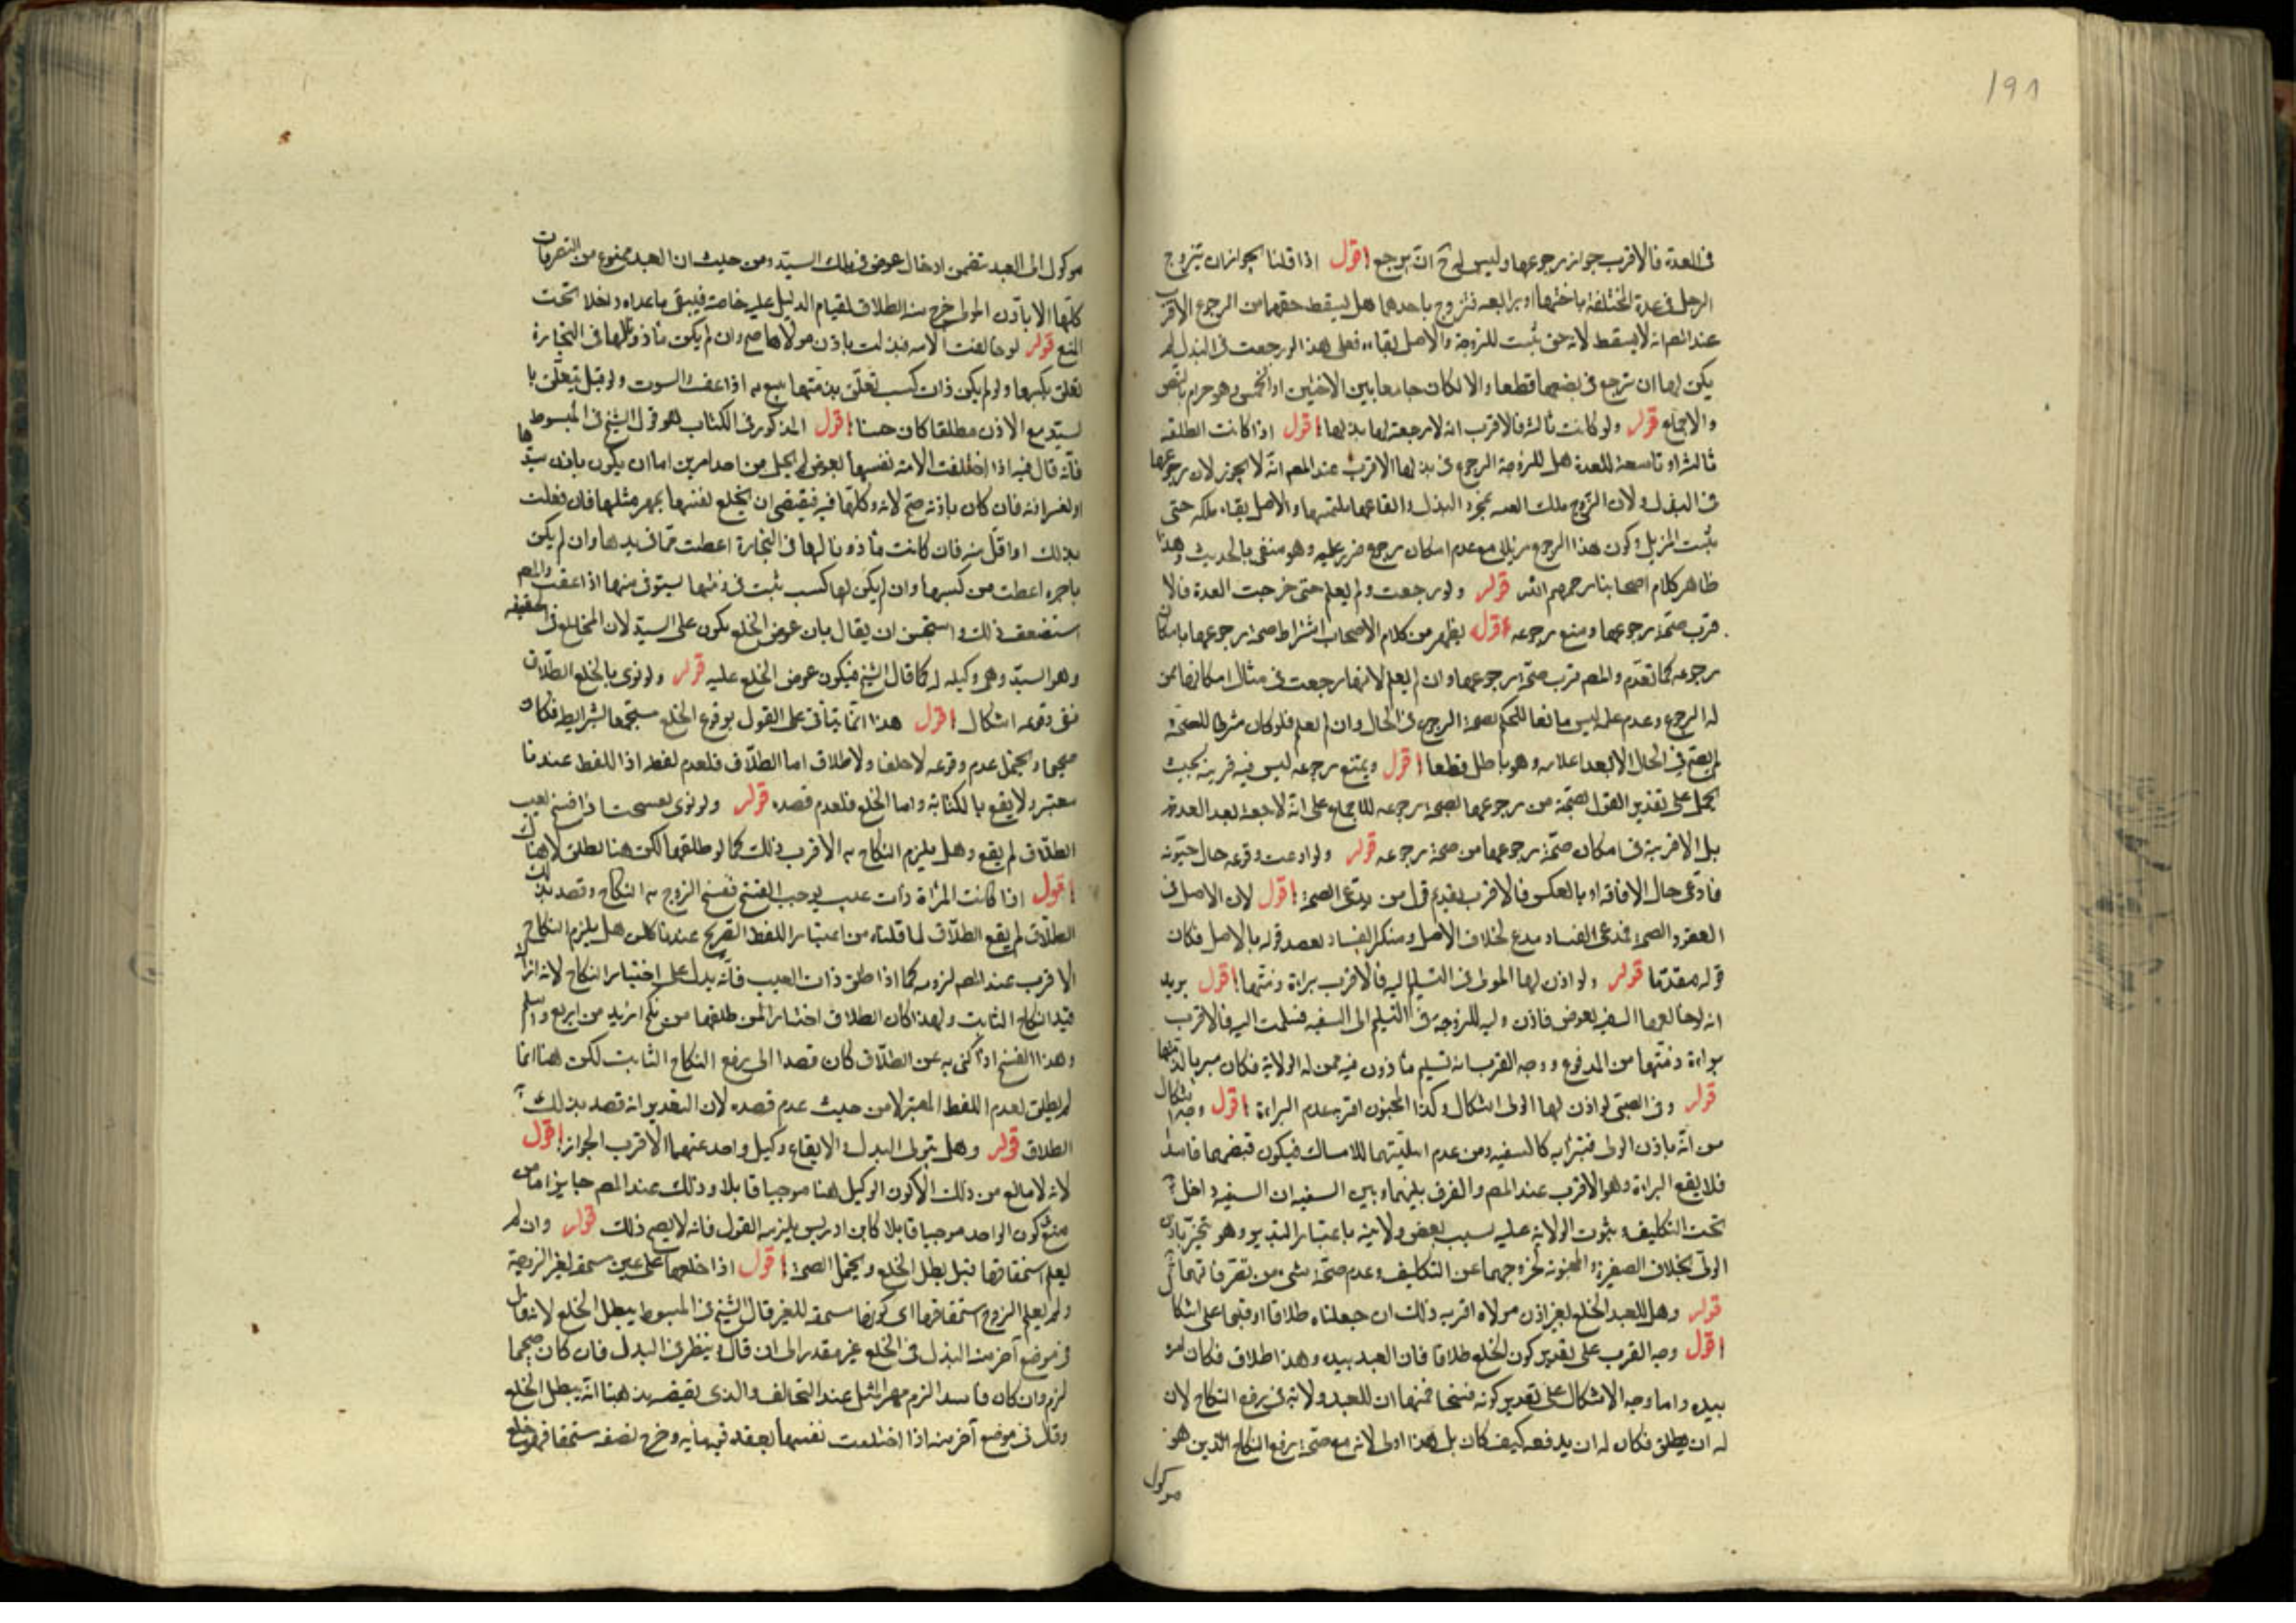 ١٩١
فى العدة فالاقرب جواز رجوعها وليس له ح ان يرجع اقول اذا قلنا يجوز ان يتزوج
الرجل فى عدة المختلفة باختها او برابعه فتزوج باحدهما هل يسقط حقها من الرجوع الاقرب
عند المصم انه لا يسقط لانه حق ثبت للزوجة والاصل بقاءه فعلى هذا لو رجعت فى البذل لم
يكن لها ان ترجع فى بضعها قطعا والا لكان جامعا بين الاختين او الخمس وهو حرام بالنص
والاجماع قوله ولو كانت ثالثه فالاقرب انه لا رجعة لها بذلها اقول اذا كانت الطلقه
ثالثه او تاسعة للعدة هل للزوجة الرجوع فى بذلها الاقرب عند المصم انه لا يجوز لان رجوعها
فى البذل ولان الزوج ملك العين بمجرد البذل وايقاعها ملتمسها والاصل بقاء ملكه حتى
يثبت المزيل وكون هذا الرجوع مزيلا مع عدم امكان رجوع ضرر عليه وهو منفى بالحديث وهذا
ظاهر كلام اصحابنا رحمهم الله قوله ولو رجعت ولم يعلم حتى خرجت العدة فالا
قرب صحة رجوعها ومنع رجوعه اقول يظهر من كلام الاصحاب اشتراط صحة رجوعها بامكان
رجوعه كما تقدم والمصم قرب صحة رجوعها وان لم يعلم لانها رجعت فى مثال امكانها ممن
له الرجوع وعدم علمه ليس مانعا للحكم بصحة الرجوع فى الحال وان لم يعلم فلو كان شرطا للصحة
لم يصح فى الحال الا بعد اعلامه وهو باطل قطعا اقول ويمتنع رجوعه ليس فيه قرينة بحيث
يحمل على تقدير القول بصحة من رجوعها بصحة رجوعه للاجماع على انه لا رجعة بعد العدة
بل الاقربية فى امكان صحة رجوعها من صحة رجوعه قوله ولو ادعت وقوعه حال جنونه
فادعى حال الافاقه او بالعكس فالاقرب تقديم قول من يدعى الصحة اقول لان الاصل فى
العقود الصحة فمدعى الفساد مدع لخلاف الاصل ومنكر الفساد يعضد قوله بالاصل فكان
قوله مقدما قوله ولو اذن لها المولى فى التسليم اليه فالاقرب براءة ذمتها اقول يريد
انه لو خالعها السفيه بعوض فاذن وليه للزوجة فى التسليم الى السفيه فسلمت اليه فالاقرب
براءة ذمتها من المدفوع ووجه القرب انه تسليم مأذون فيه ممن له الولاية فكان مبريا لذمتها
قوله وفى الصبى لو اذن لها الولى اشكال وكذا المجنون اقربه عدم البراءة اقول وجه الاشكال
من انه باذن الولى فتبرأ به كالسفيه ومن عدم اهليتهما للامساك فيكون قبضهما فاسدا
فلا يقع البراءة وهو الاقرب عند المصم والفرق بينهما وبين السفيه ان السفيه داخل
تحت التكليف وثبوت الولاية عليه بسبب بعض ولايته باعتبار التبذير وهو ينجبر باذن
الولى بخلاف الصغير والمجنون لخروجهما عن التكليف وعدم صحة شىء من تصرفاتهما
قوله وهل للعبد الخلع بغير اذن مولاه اقربه ذلك ان جعلناه طلاقا او فسخا على اشكال
اقول وجه القرب على تقدير كون الخلع طلاقا فان العبد بيده وهذا طلاق فكان امره
بيده واما وجه الاشكال على تقدير كونه فسخا فمنها ان للعبد ولاية فى رفع النكاح لان
له ان يطلق فكان له ان يدفعه كيف كان بل هذا اولى لانه مع صحة رفع النكاح الذين هو
موكول
موكول الى العبد يتضمن ادخال عوض فى ملك السيد ومن حيث ان العبد ممنوع من التصرفات
كلها الا باذن المولى خرج منه الطلاق لقيام الدليل عليه خاصة فيبقى ما عداه داخلا تحت
المنع قوله لو خالعت الامه فبذلت باذن مولاها صح وان لم يكن مأذونا لها فى التجارة
تعلق بكسبها ولو لم يكن ذات كسب تعلق بذمتها يتبع به اذا عتقت وايسرت ولو قيل يتعلق با
لسيد مع الاذن مطلقا كان حسنا اقول المذكور فى الكتاب هو قول الشيخ فى المبسوط
فانه قال فيه اذا اختلعت الامة نفسها بعوض لم يخل من احد امرين اما ان يكون باذن سيدها
او بغير اذنه فان كان باذنه صح لانه وكلها فيه فيقتضى ان يخلع نفسها بمهر مثلها فان فعلت
بذلك او اقل منه فان كانت مأذونا لها فى التجارة اعطت مما فى يدها وان لم يكن
تاجره اعطت من كسبها وان لم يكن لها كسب يثبت فى ذمتها يستوفى منها اذا اعتقت والمصم
استضعف ذلك واستحسن ان يقال بان عوض الخلع يكون على السيد لان المخالع فى الحقيقه
وهو السيد وهى وكيله له كما قال الشيخ فيكون عوض الخلع عليه قوله ولو نوى بالخلع الطلاق
ففى وقوعه اشكال اقول هذا انما يتأتى على القول بوقوع الخلع مستجمعا لشرايطه فكان
صحيحا ويحتمل عدم وقوعه لا خلعا ولا طلاق اما الطلاق فلعدم لفظه اذ اللفظ عندنا
معتبر ولا يقع بالكناية واما الخلع فلعدم قصده قوله ولو نوى بفسخت اذا فسخ بعيب
الطلاق لم يقع وهل يلزم النكاح به الاقرب ذلك كما لو طلقها لكن هنا يطلق لا هناك
اقول اذا كانت المرأة ذات عيب يوجب الفسخ ففسخ الزوج به النكاح وقصد بذلك
الطلاق لم يقع الطلاق لما قلناه من اعتبار اللفظ الصريح عندنا لكن هل يلزم النكاح
الاقرب عند المصم لزومه كما اذا طلق ذات العيب فانه يدل على اختيار النكاح لانه ازالة
قيد النكاح الثابت ولهذا كان الطلاق اختيارا لمن طلقها من نكح ازيد من اربع واسلم
وهذا الفسخ اذا كنى به عن الطلاق كان قصدا الى رفع النكاح الثابت لكن هنا انما
لم يطلق لعدم اللفظ المعتبر لا من حيث عدم قصده لان التقدير انه قصد بذلك
الطلاق قوله وهل يتولى البذل والايقاع وكيل واحد عنهما الاقرب الجواز اقول
لانه لا مانع من ذلك الا كون الوكيل هنا موجبا قابلا وذلك عند المصم جايز اما من
منع كون الواحد موجبا قابلا كابن ادريس يلزمه القول فانه لا يصح ذلك قوله وان لم
يعلم استحقاقها قيل يبطل الخلع ويحتمل الصحة اقول اذا خلعها على عين مستحقة لغير الزوجة
ولم يعلم الزوج استحقاقها اى كونها مستحقه للغير قال الشيخ فى المبسوط يبطل الخلع لانه قال
فى موضع آخر منه البذل فى الخلع غير مقدر الى ان قال وينظر فى البدل فان كان صحيحا
لزم وان كان فاسدا لزم مهر المثل عندا لمخالف والذى يقتضيه مذهبنا انه يبطل الخلع
وقال فى موضع آخر منه اذا اختلعت نفسها بعقد قيمته مايه وخرج نصفه مستحقا فهو خلع